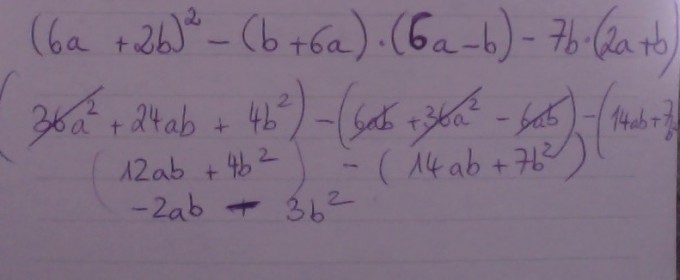 (6a + 2b)² - (b + 6a) · (6a - b) - 7b · (2a + b)
(36a² + 24ab + 4b²) - (6ab + 36a² - 6ab) - (14ab + 7b
(12ab + 4b²) - (14ab + 7b²)
-2ab - 3b²